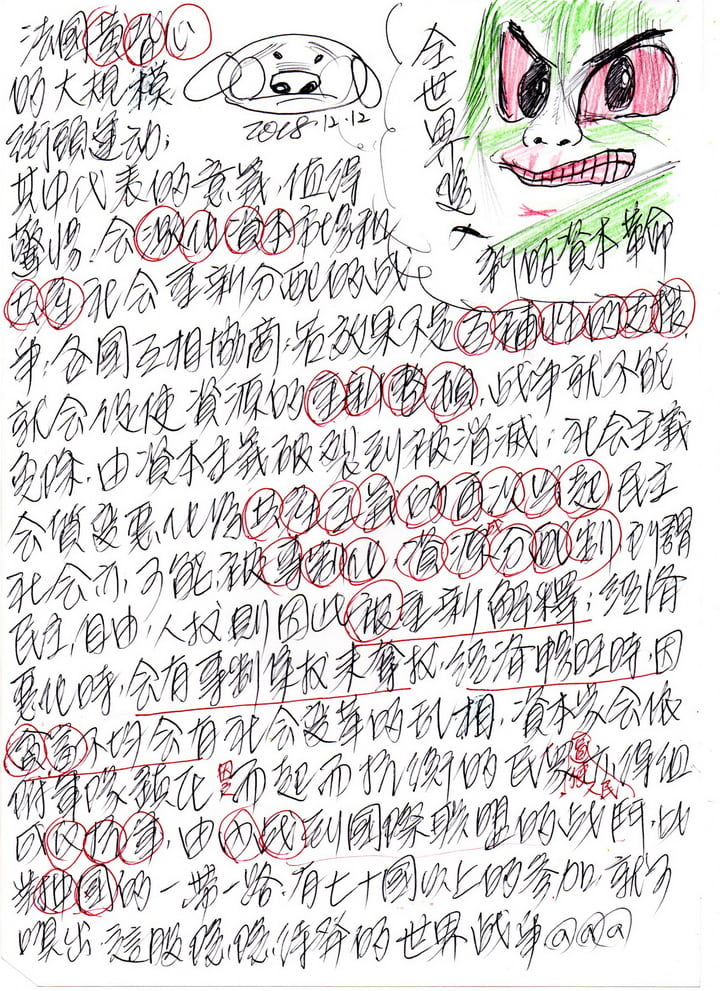 法國黃背心
的大規模
街頭運动;
其中代表的意義,值得
警惕,会激化資本市場和
共產社会重新分配的战
爭,各國互相协商;若效果不是互補性的支援
就会促使資源的重新整頓,战爭就不能
免除,由資本主義破裂到被消滅;社会主義
会演变惡化為共產主義的再次崛起,民主
社会亦可能被專制化,資源成分配制,所謂
民主,自由,人权則因此被重新解釋;經濟
惡化時,会有專制集权來奪权,經濟畅旺時,因
貧富不均会有社会变革的乱相,資本家会依
附軍隊鎮压而起而抗衡的民眾不得組
成反抗軍,由內战到國際联盟的战鬥,比
如中國的一帶一路,有七十國以上的参加,就可
嗅出這股隱隱待發的世界战爭@@@
2018.12.12
全世界進入
新的資本革命